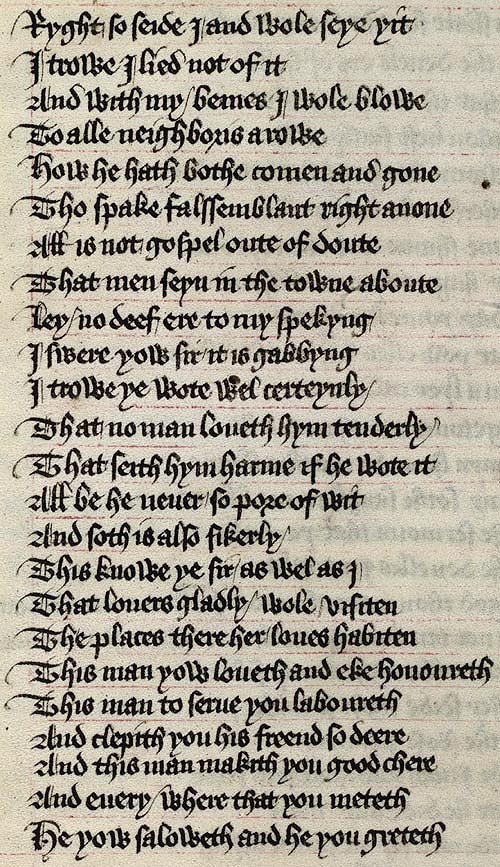 Ryght so seide I and wole seye yit
I trowe I lied not of it
And with my bemes I wole blowe
To alle neighboris arowe
How he hath bothe comen and gone
Tho spake falssemblant right anone
All is not gospel oute of doute
That men seyn in the towne aboute
Ley no deef ere to my spekyng
I swere yow sir it is gabbyng
I trowe ye wote wel certeynly
That no man loueth hym tenderly
That seith hym harme if he wote it
All be he neuer so pore of wit
And soth is also sikerly
This knowe ye sir as wel as I
That louers gladly wole visiten
The places there her loues habiten
This man yow loueth and eke honoureth
This man to serue you laboureth
And clepith you his freend so deere
And this man makith you good chere
And euery where that you meteth
He yow saloweth and he you greteth